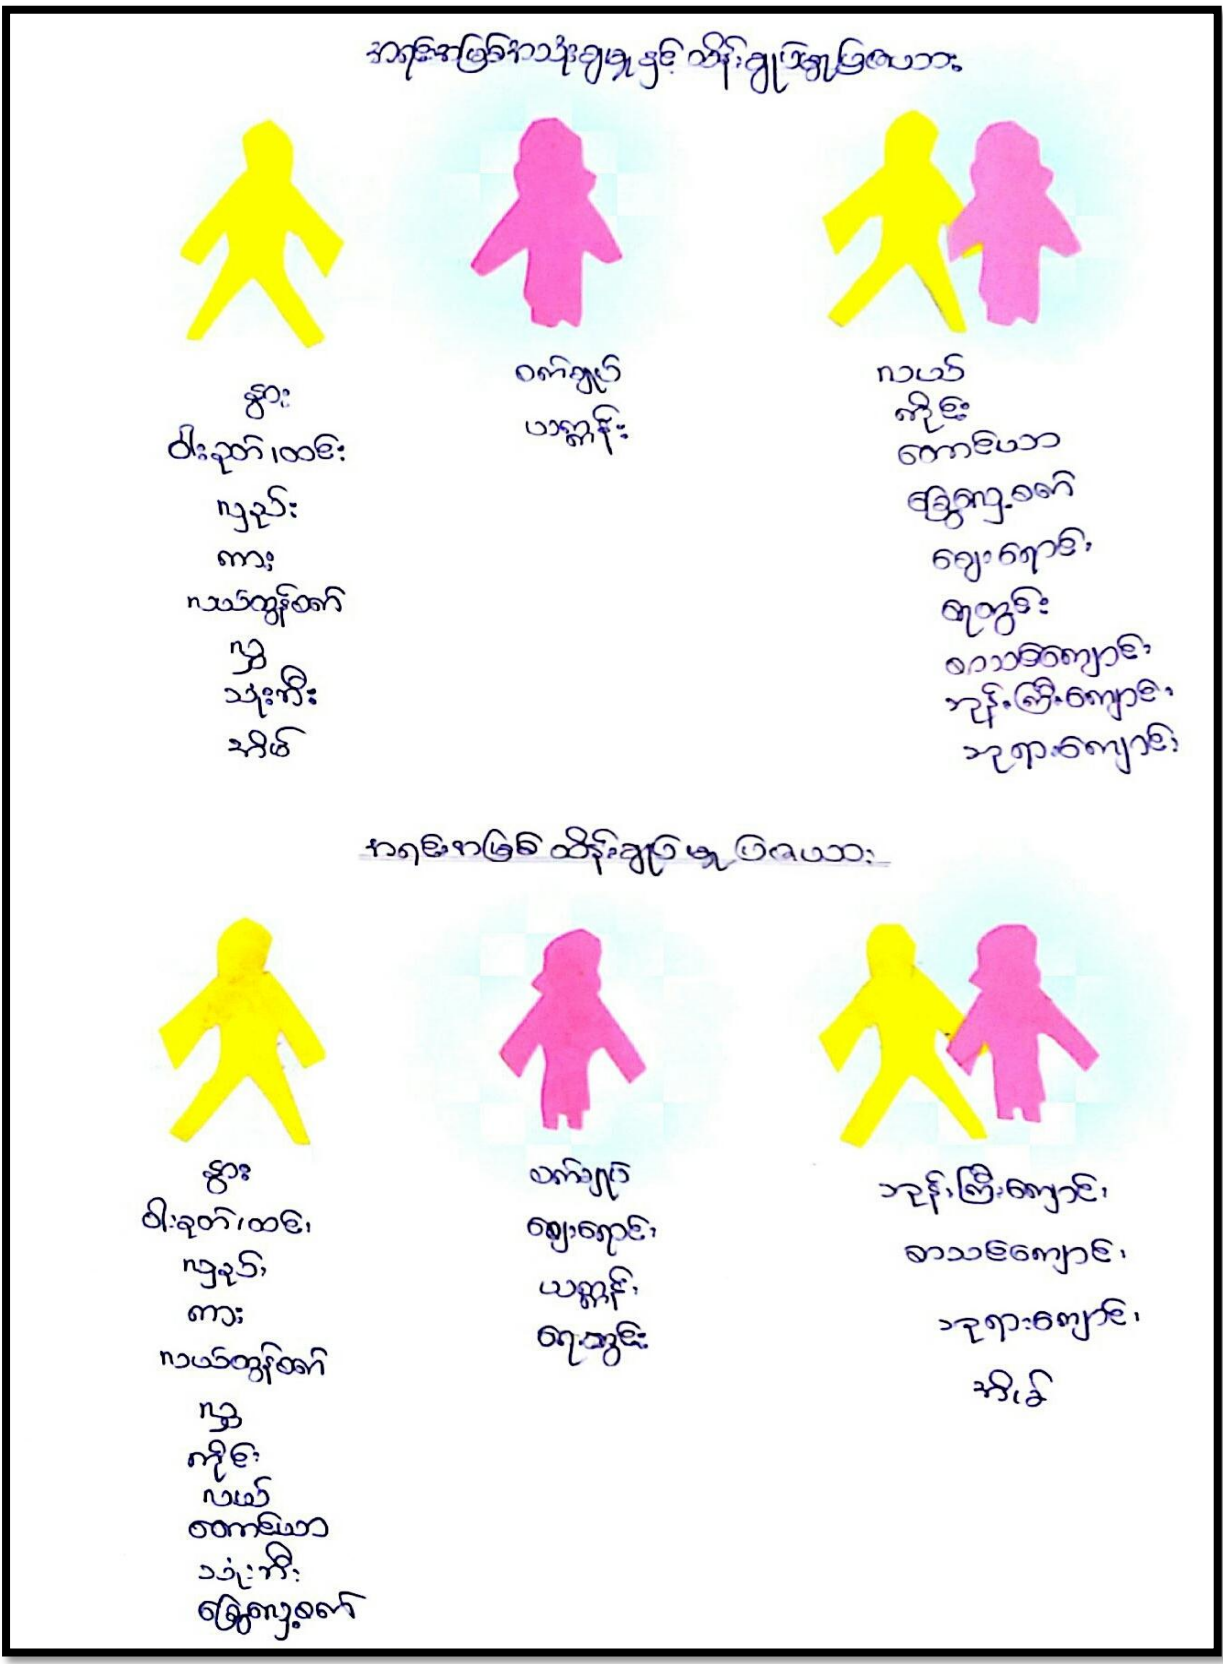 အရင်းအမြစ်အသုံးချမှု နှင့် ထိန်းချုပ်မှုပြဇယား
နွား
ဝါးခုတ်၊ထင်း
လှည်း
ကား
လယ်ထွန်စက်
လှေ
သုံးဘီး
အိမ်
စက်ချုပ်
ယက္ကန်း
လယ်
ကိုင်း
တောင်ယာ
ခြွေလှေ့စက်
ဈေးရောင်း
ရေတွင်း
စာသင်ကျောင်း
ဘုန်းကြီးကျောင်း
ဘုရားကျောင်း
အရင်းအမြစ် ထိန်းချုပ်မှု ပြဇယား
နွား
ဝါးခုတ်၊ထင်း
လှည်း
ကား
လယ်ထွန်စက်
လှေ
ကိုင်း
လယ်
တောင်ယာ
သုံးဘီး
ခြွေလှေ့စက်
စက်ချုပ်
ဈေးရောင်း
ယက္ကန်း
ရေတွင်း
ဘုန်းကြီးကျောင်း
စာသင်ကျောင်း
ဘုရားကျောင်း
အိမ်